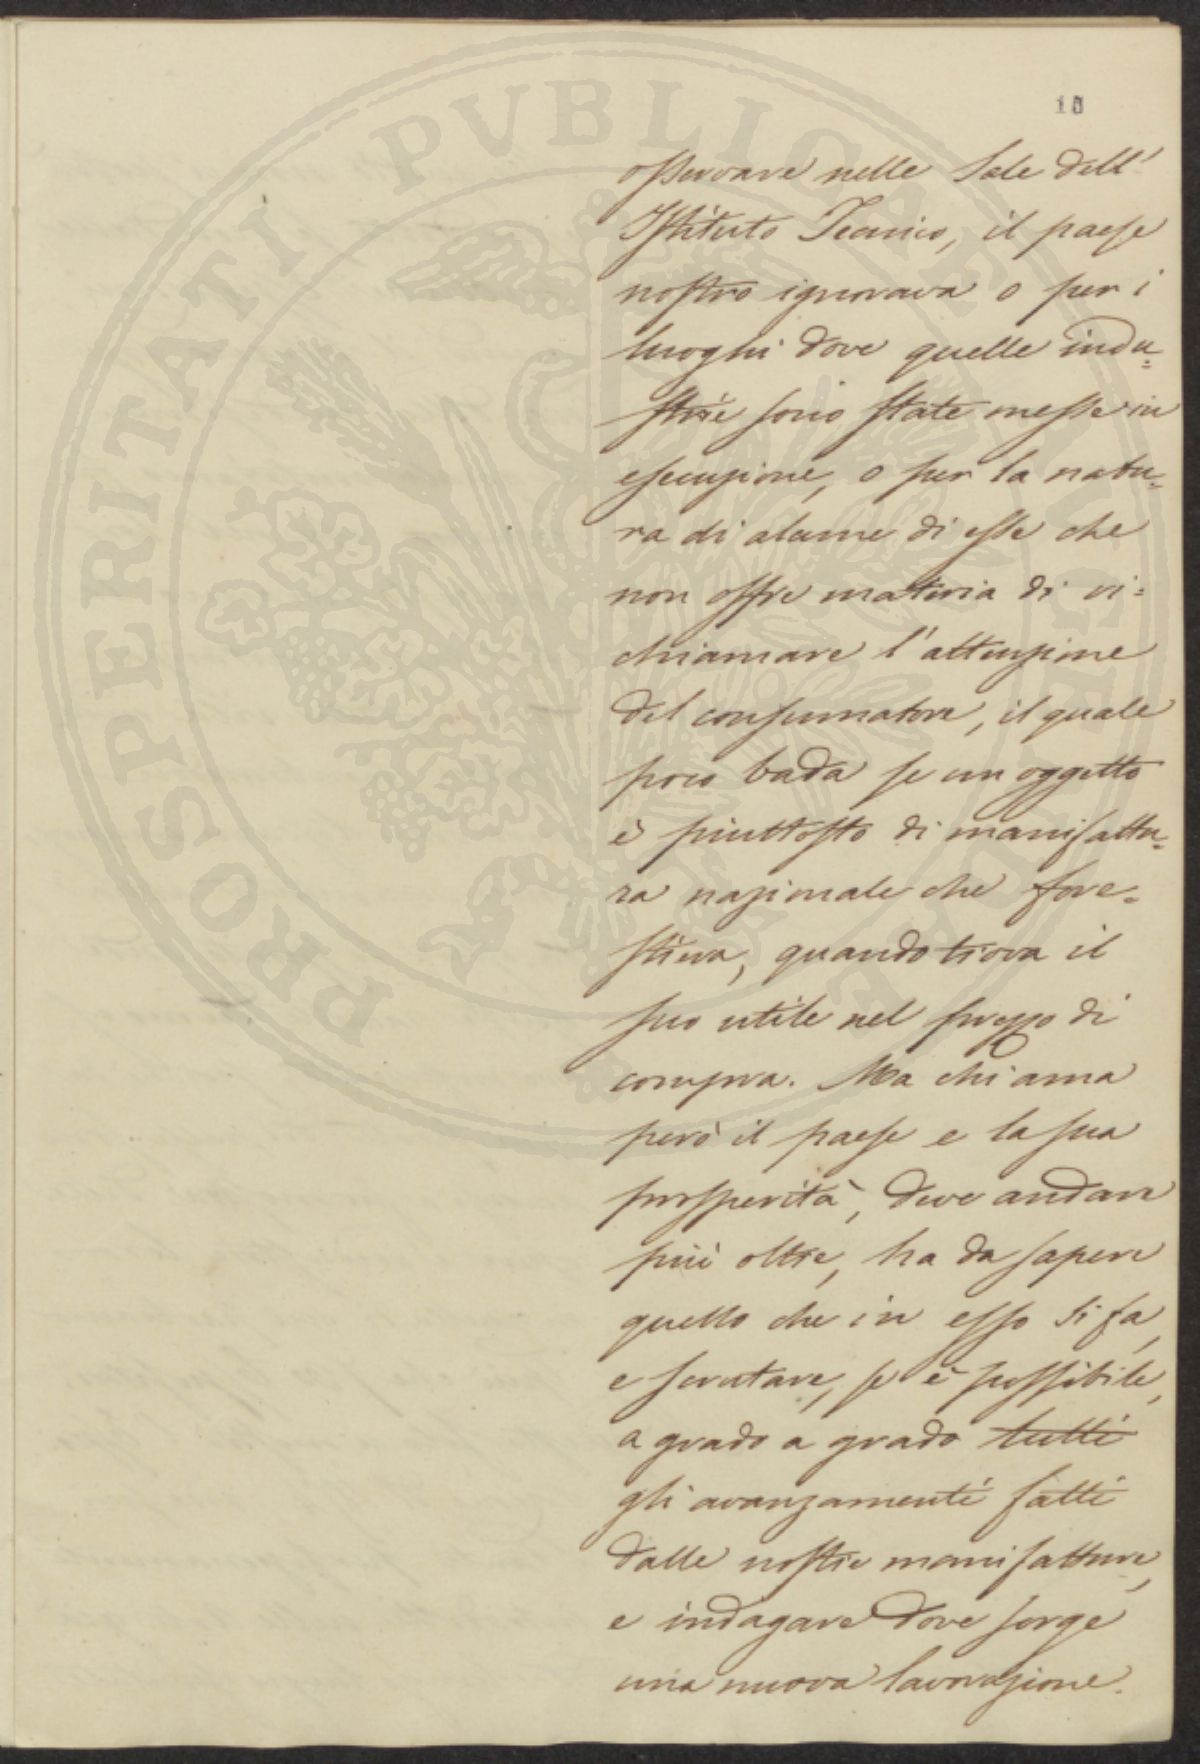 10
osservare nelle Sale dell'
Istituto Tecnico, il paese
nostro ignorava o per i
luoghi dove quelle indu=
strie sono state messe in
esecuzione, o per la natu=
ra di alcune di esse che
non offre materia di ri=
chiamare l'attenzione
del consumatore, il quale
poco bada se un oggetto
è piuttosto di manifattu=
ra nazionale che fore=
stiera, quando trova il
suo utile nel prezzo di
compra. Ma chi ama
però il paese e la sua
prosperità, deve andare
più oltre, ha da sapere
quello che in esso si fa,
e scrutare, se è possibile,
a grado a grado tutti
gli avanzamenti fatti
dalle nostre manifatture,
e indagare dove sorge
una nuova lavorazione.
PROSPERITATI PVBLICAE AVGENDAE